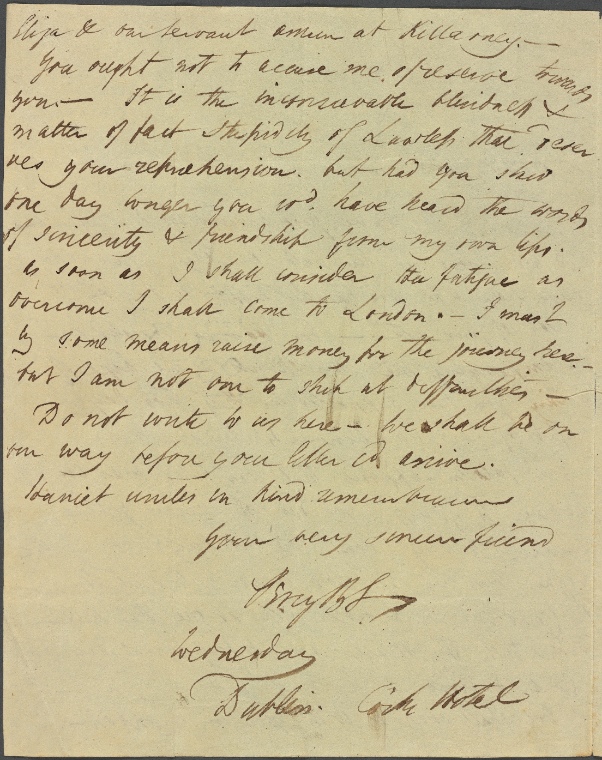 Eliza & our servant remain at Killarney.—
You ought not to accuse me of reserve towards
you.— It is the inconceivable blindness &
matter of fact stupidity of Lawless that deser
ves your reprehension. but had you staid
one day longer you wd. have heard the words
of sincerity & friendship from my own lips.
as soon as I shall consider the fatigue as
overcome I shall come to London. — I must
by some means raise money for the journey
but I am not one to stick at difficulties —
Do not write to us here — we shall be on
our way before your letter cd arrive.
Harriet unites in kind remembrances
Your very sincere friend
Percy B S
Wednesday
Dublin. Cooks Hotel